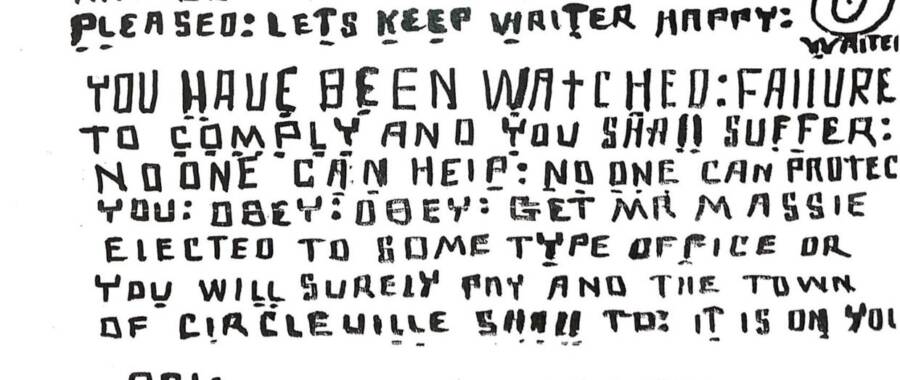 PLEASED: LETS KEEP WRITER HAPPY:
WRITER
YOU HAVE BEEN WATCHED: FAILURE
TO COMPLY AND YOU SHALL SUFFER:
NO ONE CAN HELP: NO ONE CAN PROTEC
YOU: OBEY: OBEY: GET MR MASSIE
ELECTED TO SOME TYPE OFFICE OR
YOU WILL SURELY PAY AND THE TOWN
OF CIRCLEVILLE SHALL TO: IT IS ON YOU